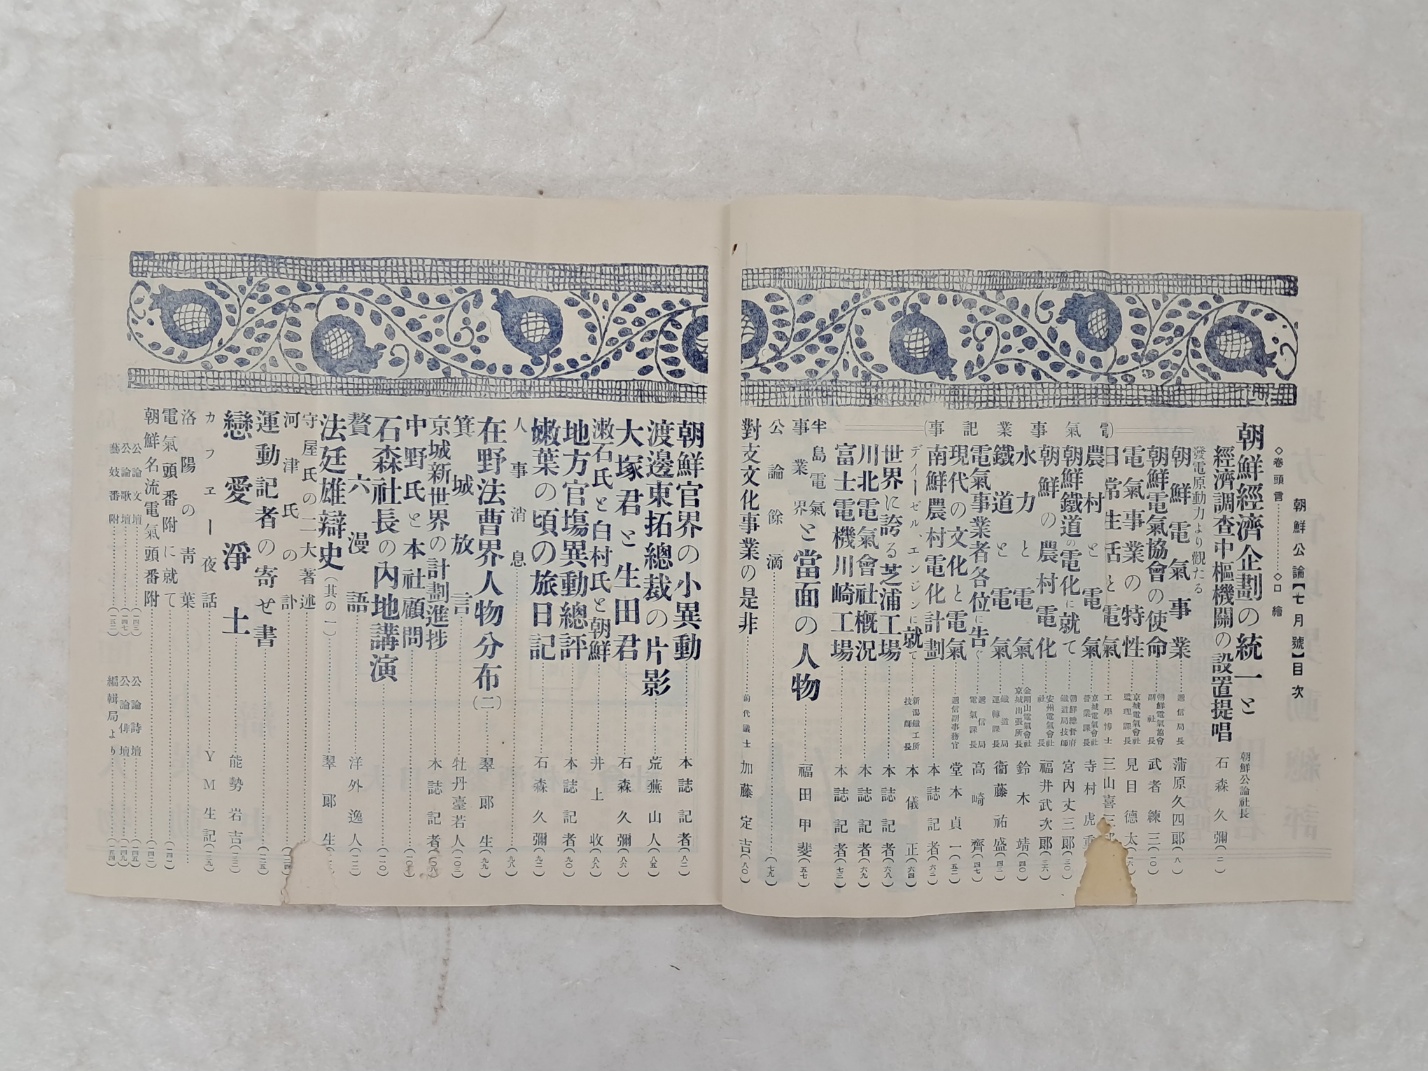 朝鮮公論【七月號】目次
◇卷頭言…………◇口繪
朝鮮經濟企劃の統一と
經濟調査中樞機關の設置提唱 朝鮮公論社長 石森久彌(二)
(電氣事業記事)
發電原動力より觀たる
朝鮮電氣事業 遞信局長 蒲原久四郎
朝鮮電氣協會の使命 朝鮮電氣協會 武者練三
電氣事業の特性 京城電氣會社 見目德太
日常生活と電氣 工學博士 三山喜三郎
農村と電氣 京城電氣會社 寺村虎重
朝鮮鐵道の電化に就て 朝鮮總督府鐵道局技師 宮內丈三郎
朝鮮の農村電化 福井武次郎
水力と電氣 金剛山電氣會社京城出張所長 鈴木靖
鐵道と電氣 衛藤祐盛
電氣事業者各位に告ぐ 遞信局電氣課長 高崎齊(四七)
現代の文化と電氣 堂本貞一(五二)
南鮮農村電化計劃 本誌記者(六二)
デイーゼル、エンジンに就て 本儀正(六四)
世界に誇る芝浦工場 本誌記者(六八)
川北電氣會社槪況 本誌記者(六九)
富士電機川崎工場 本誌記者(七三)
半島電氣事業界と當面の人物 福田甲斐(五七)
公論餘滴(七九)
對支文化事業の是非 前代議士 加藤定吉(八〇)
朝鮮官界の小異動 本誌記者(八二)
渡邊東拓總裁の片影 荒蕪山人(八五)
大塚君と生田君 石森久彌(八六)
漱石氏と白村氏と朝鮮 井上收(八八)
地方官塲異動總評 本誌記者(九〇)
嫩葉の頃の旅日記 石森久彌(九二)
人事消息(九八)
在野法曹界人物分布(二) 翠郎生(九九)
箕城放言 牡丹臺若人(一〇三)
京城新世界の計劃進捗 本誌記者
中野氏と本社顧問
石森社長の內地講演(一一〇)
贅六漫語 洋外逸人
法廷雄辯史(其の一) 翠郎生
守屋氏の二大著述
河津氏の訃
運動記者の寄せ書
戀愛淨土 能勢岩吉
カフヱー夜話 YM生記
洛陽の靑葉
電氣頭番附に就て
朝鮮名流電氣頭番附
公論文壇
公論詩壇
公論歌壇
公論俳壇
藝妓番附
編輯局より